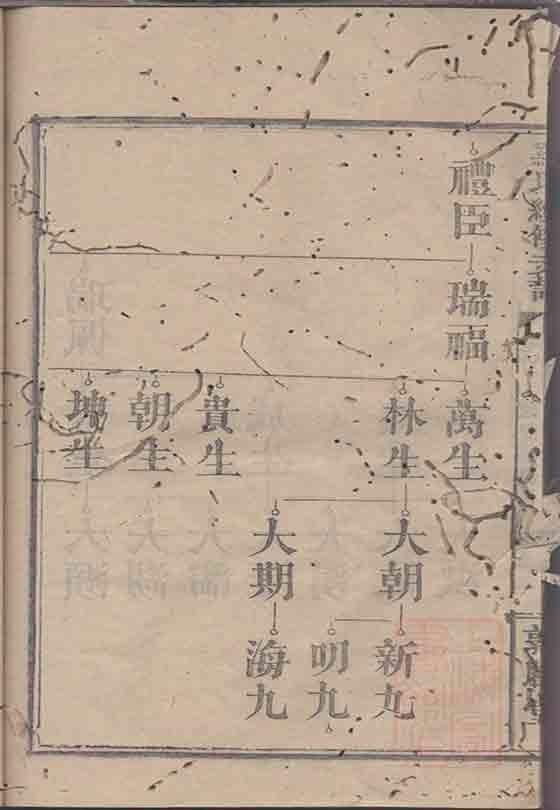 禮臣
瑞福
萬生
林生
貴生
朝生
塊生
大朝
大期
新九
明九
海九